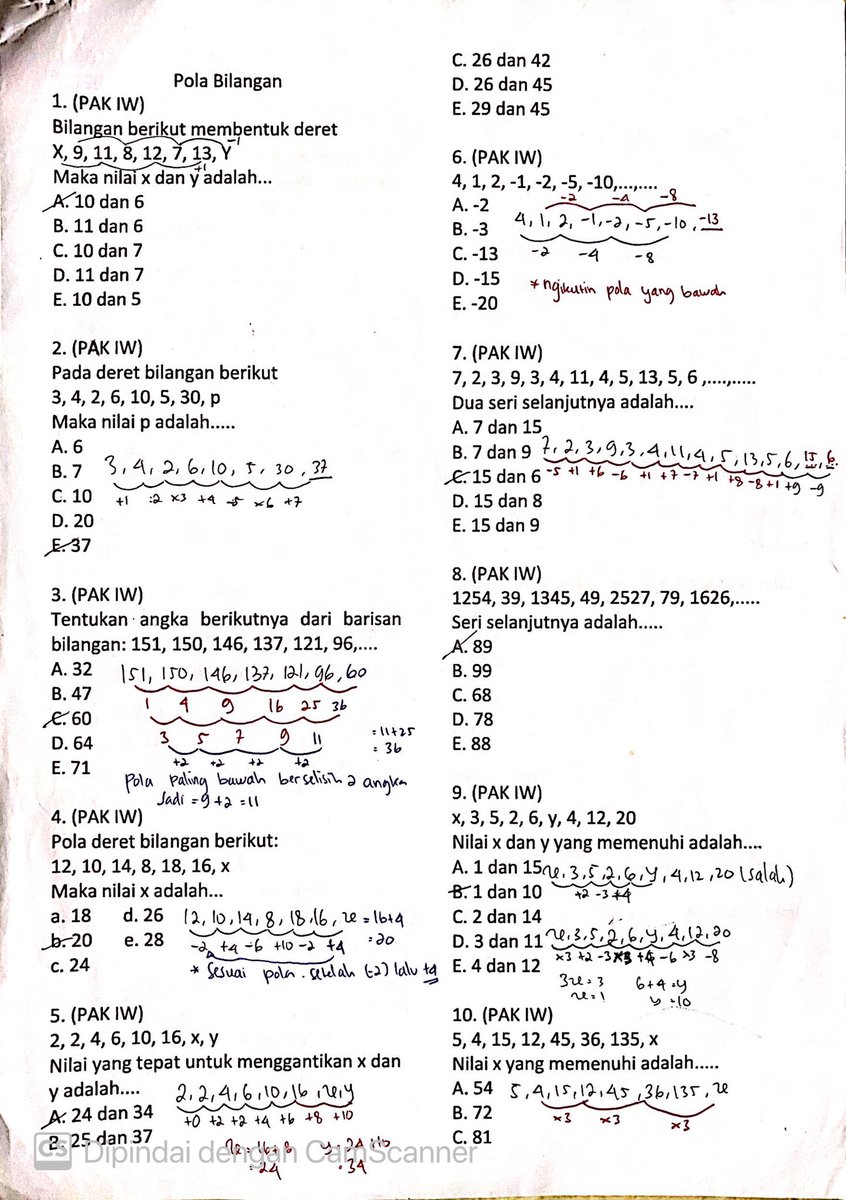 Pola Bilangan
1. (PAK IW)
Bilangan berikut membentuk deret
X, 9, 11, 8, 12, 7, 13, Y
-1
+1
Maka nilai x dan y adalah...
A. 10 dan 6
B. 11 dan 6
C. 10 dan 7
D. 11 dan 7
E. 10 dan 5
2. (PAK IW)
Pada deret bilangan berikut
3, 4, 2, 6, 10, 5, 30, p
Maka nilai p adalah.....
A. 6
B. 7
3, 4, 2, 6, 10, 5, 30, 37
C. 10
+1 :2 ×3 +4 -5 ×6 +7
D. 20
E. 37
3. (PAK IW)
Tentukan angka berikutnya dari barisan
bilangan: 151, 150, 146, 137, 121, 96,....
A. 32
151, 150, 146, 137, 121, 96, 60
B. 47
1 4 9 16 25 36
C. 60
3 5 7 9 11
= 11+25
= 36
D. 64
+2 +2 +2 +2
E. 71
Pola paling bawah berselisih 2 angka
Jadi = 9+2 = 11
4. (PAK IW)
Pola deret bilangan berikut:
12, 10, 14, 8, 18, 16, x
Maka nilai x adalah...
a. 18 d. 26
12, 10, 14, 8, 18, 16, x = 16+4
b. 20 e. 28
-2 +4 -6 +10 -2 +4
= 20
c. 24
* Sesuai pola. setelah (-2) lalu +4
5. (PAK IW)
2, 2, 4, 6, 10, 16, x, y
Nilai yang tepat untuk menggantikan x dan
y adalah....
2, 2, 4, 6, 10, 16, x, y
A. 24 dan 34
+0 +2 +2 +4 +6 +8 +10
B. 25 dan 37
x = 16+8
= 24
y = 24+10
= 34
CS Dipindai dengan CamScanner
C. 26 dan 42
D. 26 dan 45
E. 29 dan 45
6. (PAK IW)
4, 1, 2, -1, -2, -5, -10,...,....
A. -2
-2 -4 -8
B. -3
4, 1, 2, -1, -2, -5, -10, -13
C. -13
-2 -4 -8
D. -15
* ngikutin pola yang bawah
E. -20
7. (PAK IW)
7, 2, 3, 9, 3, 4, 11, 4, 5, 13, 5, 6 ,....,.....
Dua seri selanjutnya adalah....
A. 7 dan 15
B. 7 dan 9
7, 2, 3, 9, 3, 4, 11, 4, 5, 13, 5, 6, 15, 6
C. 15 dan 6
-5 +1 +6 -6 +1 +7 -7 +1 +8 -8 +1 +9 -9
D. 15 dan 8
E. 15 dan 9
8. (PAK IW)
1254, 39, 1345, 49, 2527, 79, 1626,.....
Seri selanjutnya adalah.....
A. 89
B. 99
C. 68
D. 78
E. 88
9. (PAK IW)
x, 3, 5, 2, 6, y, 4, 12, 20
Nilai x dan y yang memenuhi adalah....
A. 1 dan 15
x, 3, 5, 2, 6, y, 4, 12, 20 (salah)
B. 1 dan 10
+2 -3 +4
C. 2 dan 14
D. 3 dan 11
x, 3, 5, 2, 6, y, 4, 12, 20
E. 4 dan 12
×3 +2 -3 ×3 +4 -6 ×3 -8
3x = 3
x = 1
6+4 = y
y = 10
10. (PAK IW)
5, 4, 15, 12, 45, 36, 135, x
Nilai x yang memenuhi adalah.....
A. 54
5, 4, 15, 12, 45, 36, 135, x
B. 72
×3 ×3 ×3
C. 81